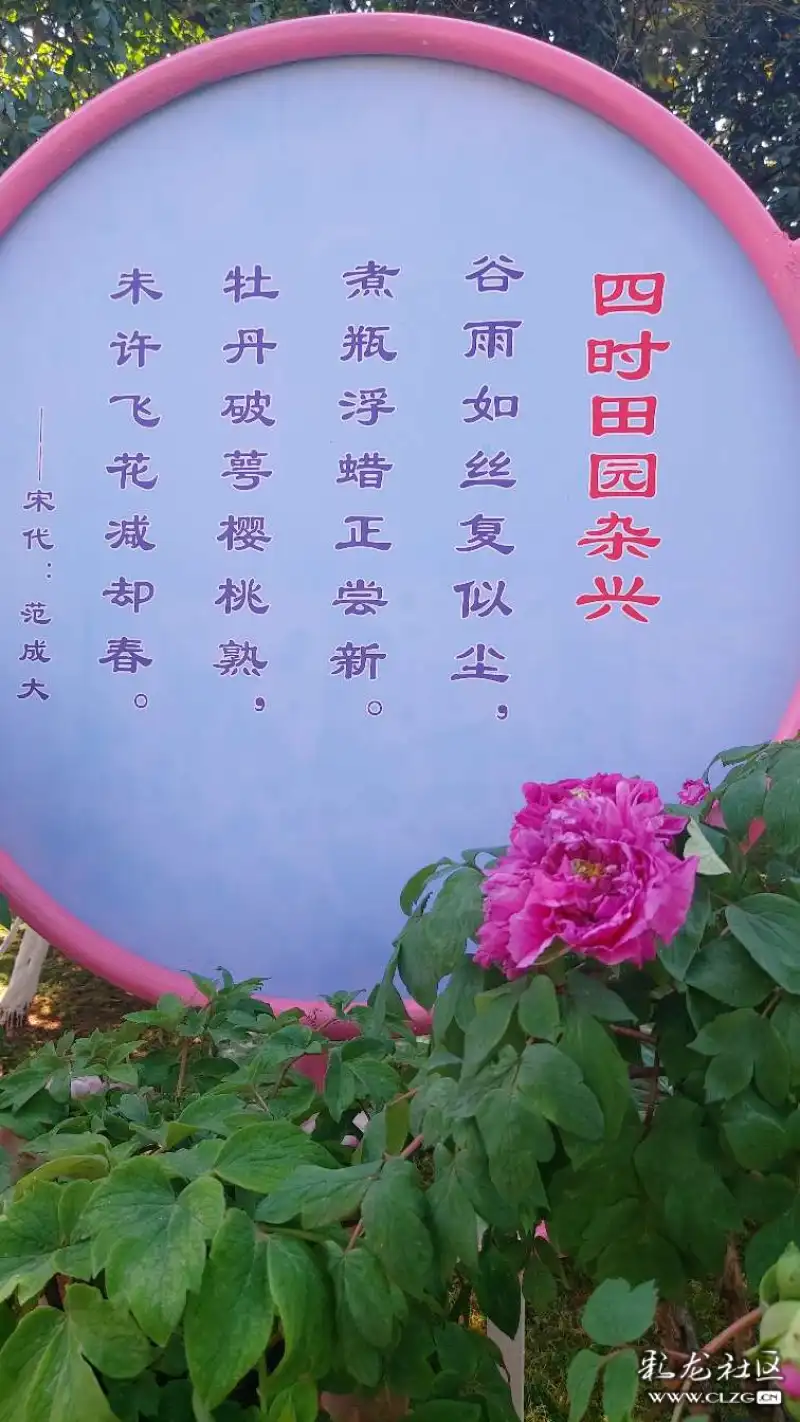 四时田园杂兴
谷雨如丝复似尘，
煮瓶浮蜡正尝新。
牡丹破萼樱桃熟，
未许飞花减却春。
——宋代：范成大
彩龙社区
WWW.CLZG.CN